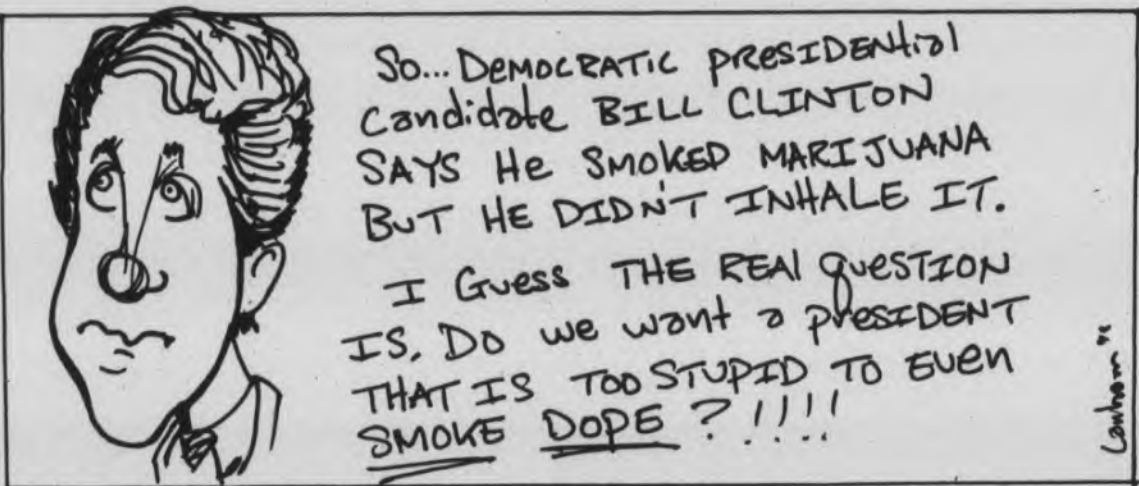 So... DEMOCRATIC PRESIDENtial
Candidate BILL CLINTON
SAYS He SMOKED MARIJUANA
BUT HE DIDN'T INHALE IT.
I Guess THE REAl QUESTION
IS, DO we want a PRESIDENT
THAT IS TOO STUPID TO EVen
SMOKE DOPE ?!!!!